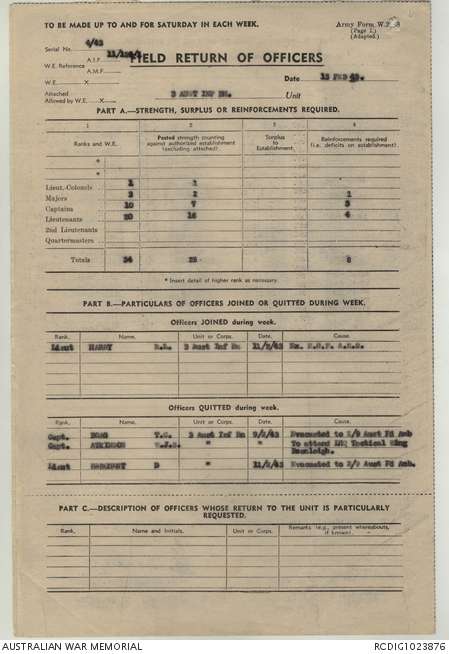 TO BE MADE UP TO AND FOR SATURDAY IN EACH WEEK.
Army Form W.
(Page 1.)
(Adapted.)
Serial No. 4/43
A.I.F.
W.E. Reference
A.M.F.
FIELD RETURN OF OFFICERS
W.E. X
Date 13 FEB 43.
Attached
Allowed by W.E. X
3 AUST INF BN. Unit
PART A.—STRENGTH, SURPLUS OR REINFORCEMENTS REQUIRED.
1 2 3 4
Ranks and W.E. Posted strength counting against authorized establishment (excluding attached) Surplus to Establishment. Reinforcements required (i.e. deficits on establishment).
*
*
Lieut.-Colonels 1 1
Majors 3 2 1
Captains 10 7 3
Lieutenants 20 16 4
2nd Lieutenants
Quartermasters
Totals 34 8
* Insert detail of higher rank as necessary.
PART B.—PARTICULARS OF OFFICERS JOINED OR QUITTED DURING WEEK.
Officers JOINED during week.
Rank. Name. Unit or Corps. Date. Cause.
Lieut 3 Aust Inf Bn 11/2/43
Officers QUITTED during week.
Rank. Name. Unit or Corps. Date. Cause.
Capt. T.G. 3 Aust Inf Bn 9/2/43 Evacuated to 2/9 Aust Fd Amb
Capt. ATKINSON W.J.S. " " To attend LHQ Tactical Wing
Beenleigh.
Lieut D " 11/2/43 Evacuated to 2/9 Aust Fd Amb.
PART C.—DESCRIPTION OF OFFICERS WHOSE RETURN TO THE UNIT IS PARTICULARLY
REQUESTED.
Rank. Name and Initials. Unit or Corps. Remarks (e.g., present whereabouts, if known).
AUSTRALIAN WAR MEMORIAL
RCDIG1023876